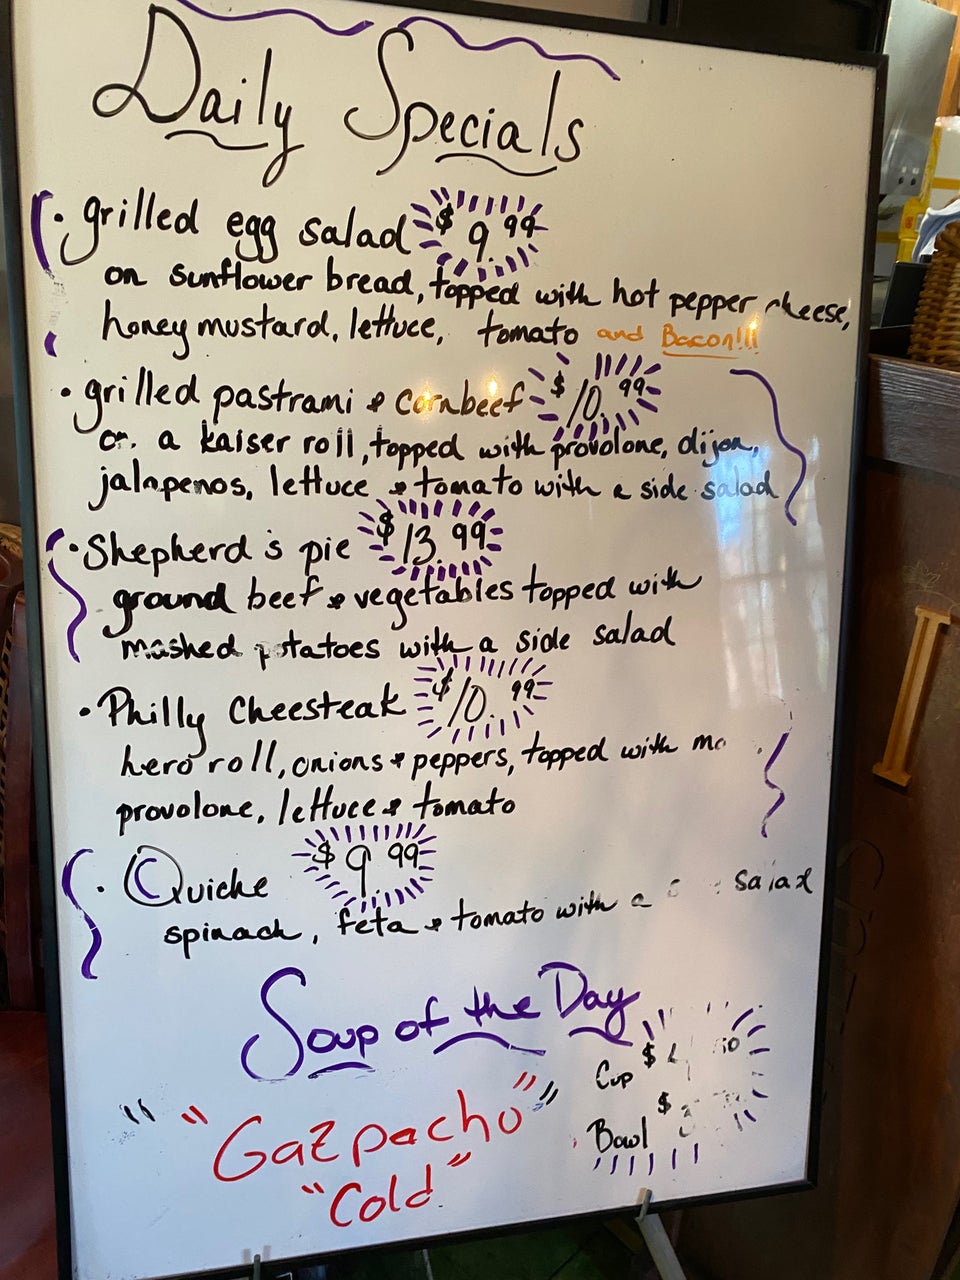 Daily Specials
• grilled egg salad $9.99
on sunflower bread, topped with hot pepper cheese,
honey mustard, lettuce, tomato and Bacon!!!
• grilled pastrami & cornbeef $10.99
on a kaiser roll, topped with provolone, dijon,
jalapenos, lettuce & tomato with a side salad
• Shepherd's pie $13.99
ground beef & vegetables topped with
mashed potatoes with a side salad
• Philly Cheesteak $10.99
hero roll, onions & peppers, topped with
provolone, lettuce & tomato
• Quiche $9.99
spinach, feta & tomato with a salad
Soup of the Day
"Gazpacho"
"Cold"
Cup $
Bowl $